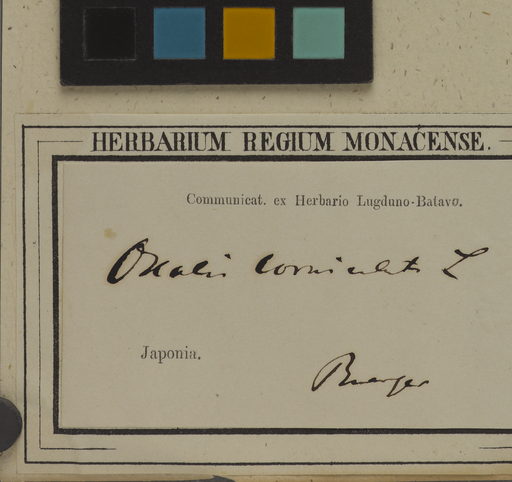 HERBARIUM REGIUM MONACENSE.
Communicat. ex Herbario Lugduno-Batavo.
Oxalis corniculata L
Japonia.
Buerger